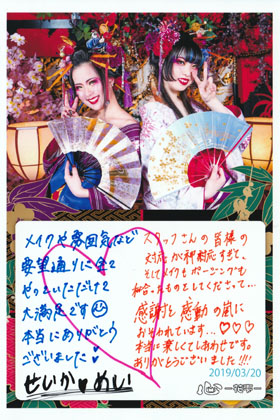 メイクや雰囲気など
要望通りに全て
やっていただけて
大満足です
本当にありがとう
ございました♥
せいか♥めい
スタッフさんの皆様の
対応が神対応すぎて、
そしてメイクもポージングも
感謝と感動の嵐に
おそわれています…♡♡♡
本当に楽しくてしあわせです。
ありがとうございました!!!
2019/03/20